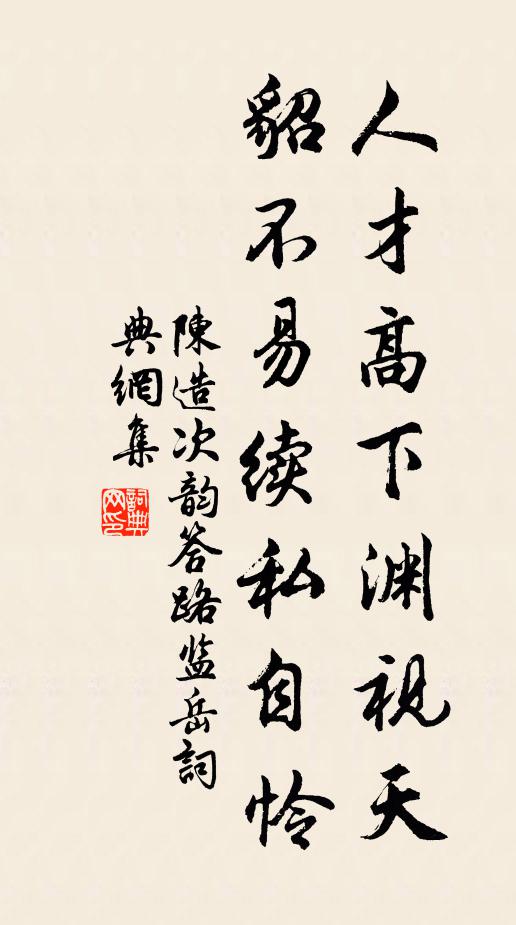 人才高下渊視天
貂不易续私自怜
陳造次韵答路监岳詞
典網集
詞典网印